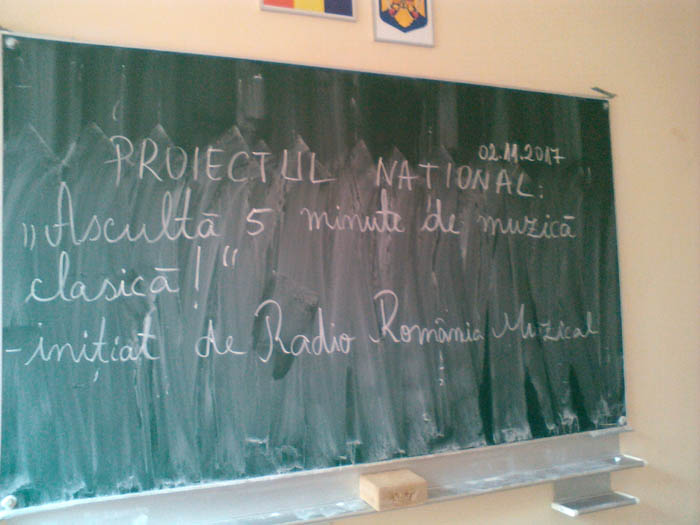 02.11.2017
PROIECTUL NAȚIONAL:
„Ascultă 5 minute de muzică
clasică!“
-inițiat de Radio România Muzical